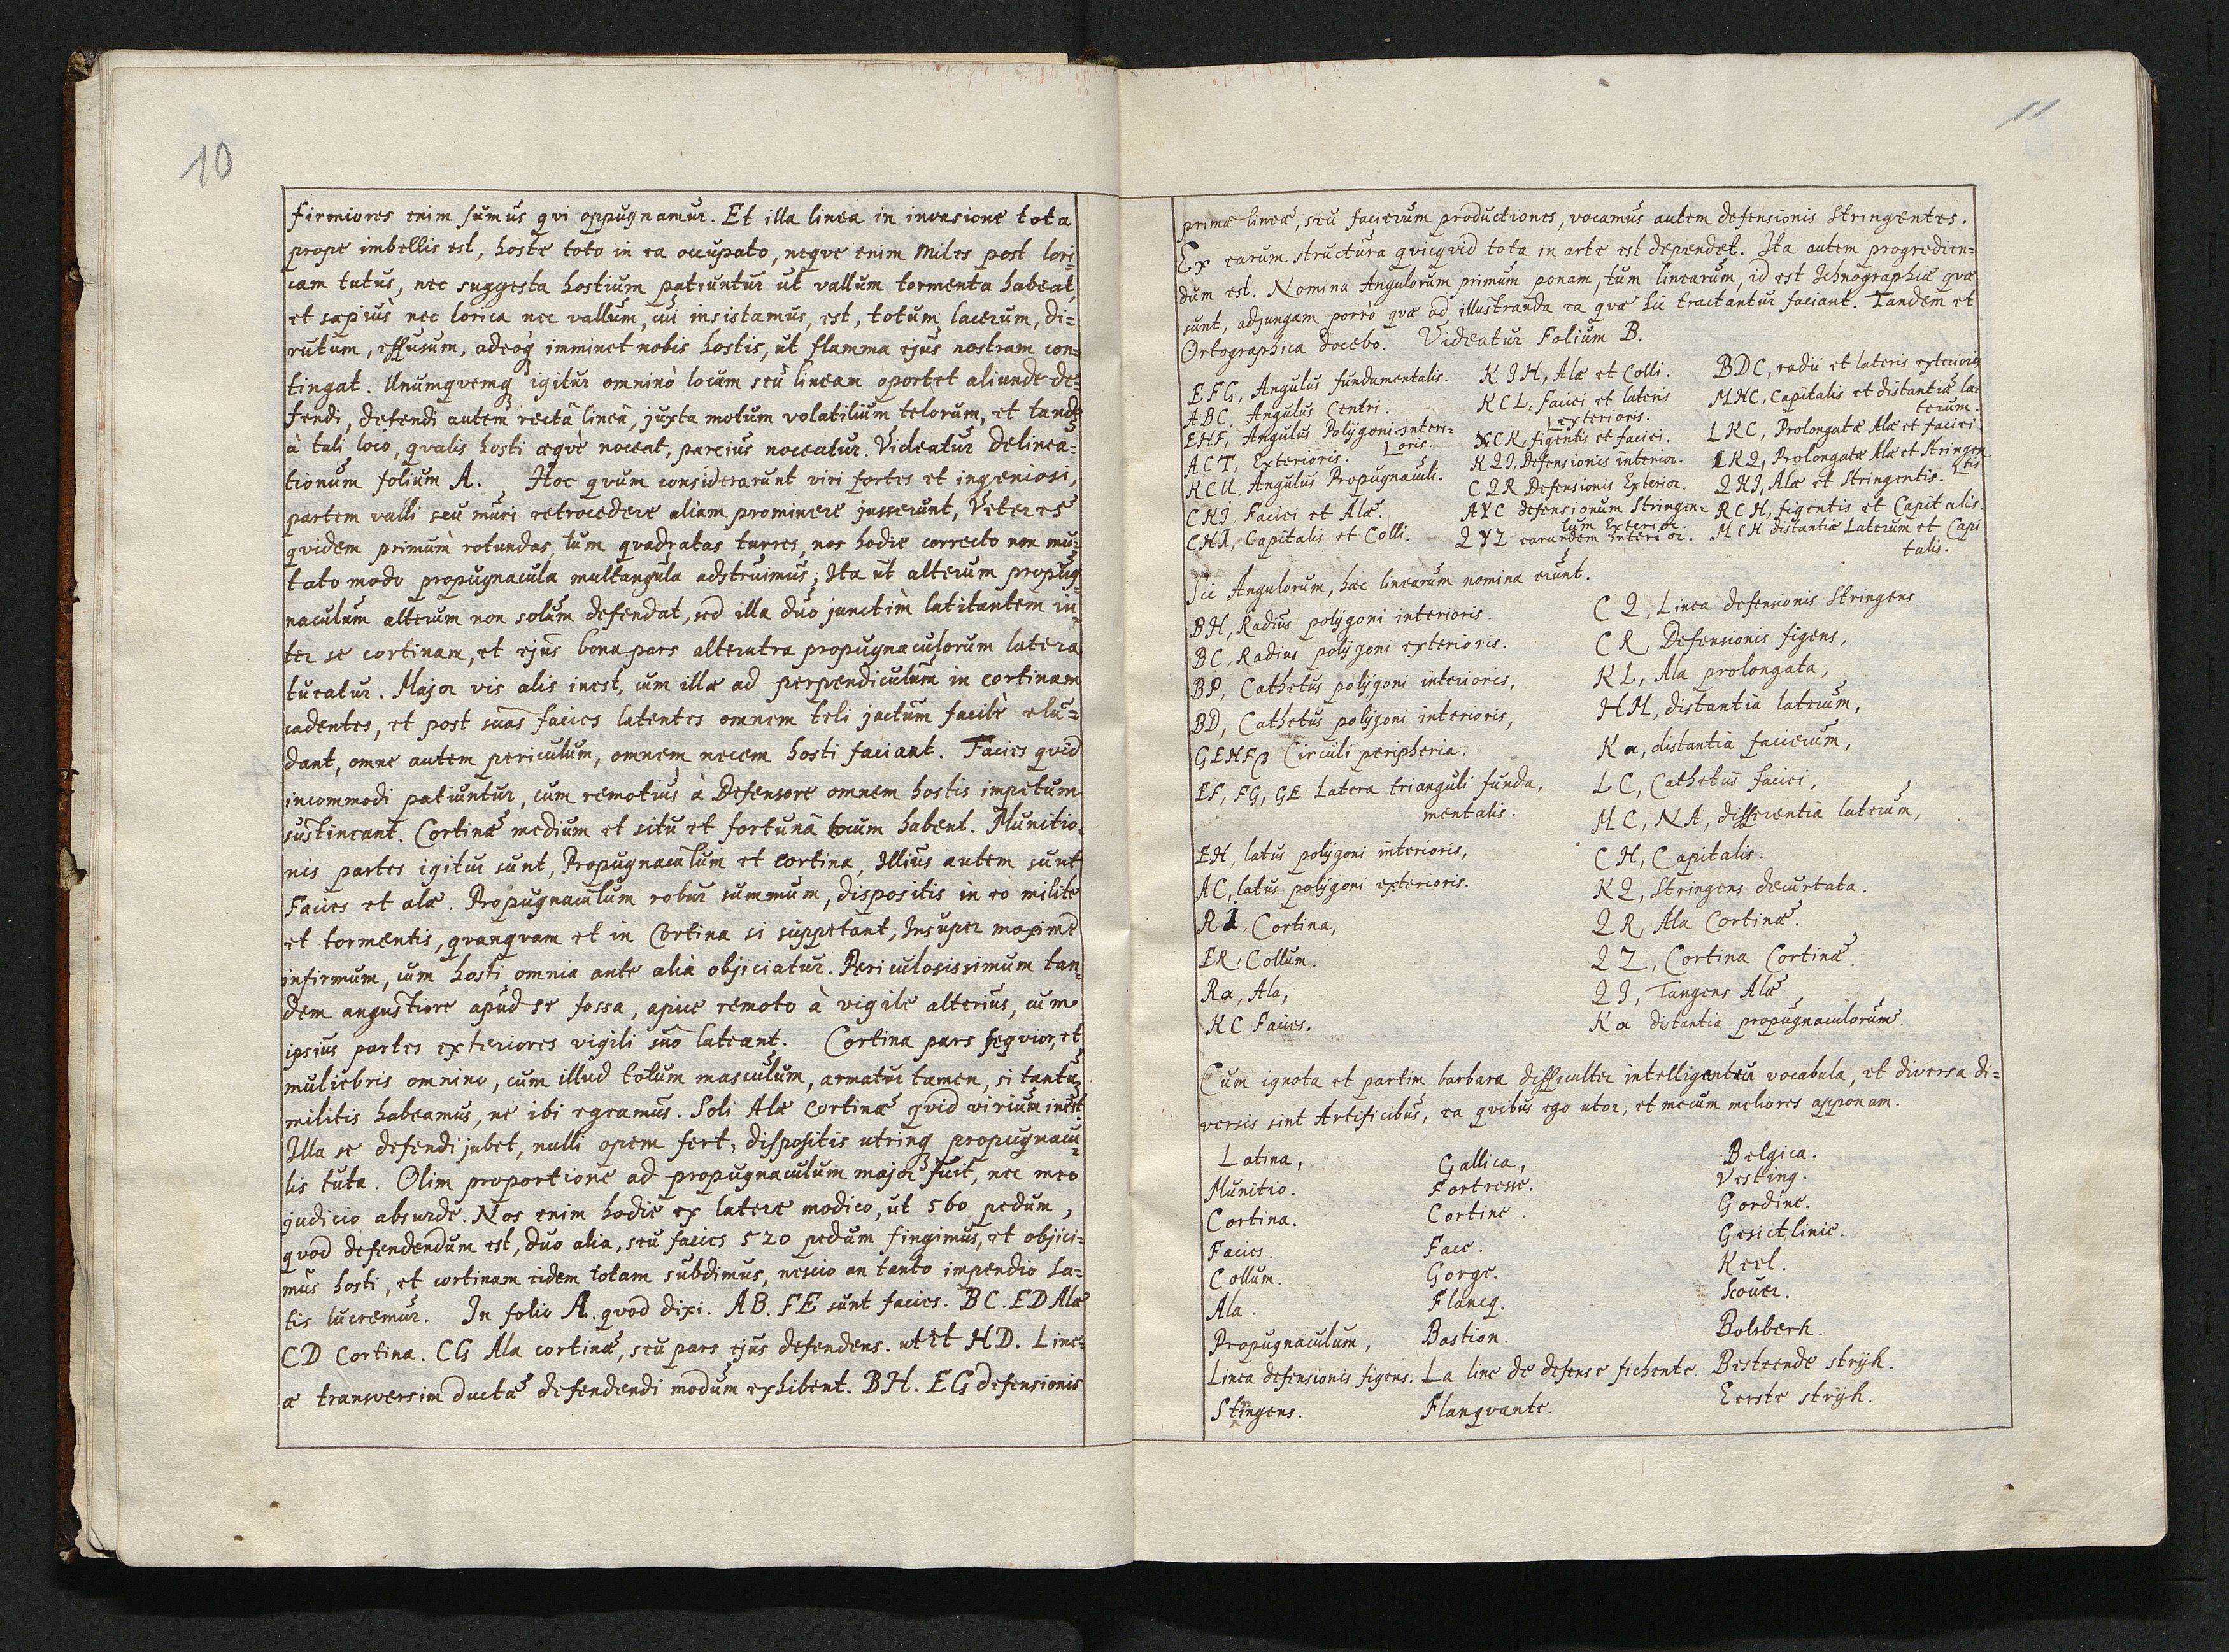 10
firmiores enim sumus qvi oppugnamur. Et illa linea in invasione tota
prope imbellis est, hoste toto in ea occupato, neqve enim miles post lori-
cam tutus, nec suggesta hostium patiuntur ut vallum tormenta habeat,
et sæpiùs nec lorica nec vallum, cui insistamus, est, totum lacerum, di=
rutum, effusum, adeoq imminet nobis hostis, ut flamma ejus nostram con=
tingat. Unumqvemq igitur omninò locum seu lineam oportet aliunde de=
fendi, defendi autem rectâ lineâ, juxta motum volatilium telorum, et tande
à tali loco, qvalis hosti æqvè noceat, parcius noceatur. Videatur delinea=
tionum folium A. Hoc qvum considerarunt viri fortes et ingeniosi,
partem valli seu muri retrocedere aliam prominere jusserunt, Veteres
qvidem primùm rotundas, tum qvadratas turres, nos hodie correcto non mu=
tato modo propugnacula multangula adstruimus; Ita ut alterum propug=
naculum alterum non solum defendat, sed illa duo junctim latitantem in=
ter se cortinam, et ejus bona pars alterutra propugnaculorum latera
tueatur. Major vis alis inest, cum illæ ad perpendiculum in cortinam
cadentes, et post suas facies latentes omnem teli jactum facilè elu=
dant, omne autem periculum, omnem necem hosti faciant. Facies qvid
incommodi patiuntur, cum remotiùs à Defensore omnem hostis impetum
sustineant. Cortinæ medium et situ et fortunâ locum habent. Munitio-
nis partes igitur sunt, Propugnaculum et cortina, Illius autem sunt
Facies et alæ. Propugnaculum robur summum, dispositis in eo milite
et tormentis, qvanqvam et in Cortina si suppetant; Insuper maximè
infirmum, cum hosti omnia ante alia objiciatur. Periculosissimum tan-
dem angustiore apud se fossa, apice remoto à vigile alterius, cum
ipsius partes exteriores vigili suo lateant. Cortina pars seqvior, et
muliebris omnino, cum illud totum masculum, armatur tamen, si tantu
militis habeamus, ne ibi egeamus. Soli Alæ cortinæ qvid virium inest
Illa se defendi jubet, nulli opem fert, dispositis utrinq propugnacu=
lis tuta. Olim proportione ad propugnaculum major fuit, nec meo
judicio absurde. Nos enim hodie ex latere modico, ut 560 pedum,
qvod defendendum est, duo alia, seu facies 520 pedum fingimus, et objici=
mus hosti, et cortinam eidem totam subdimus, nescio an tanto impendio sa=
tis lucremur. In folio A. qvod dixi. AB. FE sunt facies. BC. ED Alæ
CD Cortina. CG Ala cortinæ, seu pars ejus defendens. ut et HD. Line=
æ transversim ductæ defendendi modum exhibent. BH. EG defensionis
11
primæ lineæ, seu facierum productiones, vocamus autem defensionis Stringentes.
Ex earum structura qvicqvid tota in arte est dependet. Ita autem progredien=
dum est. Nomina Angulorum primum ponam, tum linearum, id est Ichnographiæ qvæ
sunt, adjungam porrò qvæ ad illustranda ea qvæ hic tractantur faciant. Tandem et
Ortographica docebo. Videatur Folium B.
EFG, Angulus fundamentalis. KIH, Alæ et Colli. BDC, radii et lateris exterioris
ABC, Angulus Centri. KCL, faciei et lateris exterioris. MHC, Capitalis et distantiæ la=
terum.
EHF, Angulus Polygoni Interi=
oris. XCK, figentis et faciei. LKC, Prolongatæ Alæ et faciei
ACT, Exterioris. KQI, Defensionis interior. LKQ, Prolongatæ Alæ et Stringen
tis
KCU, Angulus Propugnaculi. CQR Defensionis Exterior. QKI, Alæ et Stringentis.
CKI, Faciei et Alæ. AYC defensionum Stringen=
tum Exterior. RCH, figentis et Capitalis
CHI, Capitalis et Colli. QYZ earundem Interior. MCH distantiæ Laterum et Capi
talis.
Sic Angulorum, hæc linearum nomina erunt.
BH, Radius polygoni interioris. CQ, Linea defensionis Stringens
BC, Radius polygoni exterioris. CR, Defensionis figens,
BP, Cathetus polygoni interioris, KL, Ala prolongata,
BD, Cathetus polygoni interioris, HM, distantia laterum,
GEHFβ Circuli peripheria. Kα, distantia facierum,
EF, FG, GE Latera trianguli funda,
mentalis. LC, Cathetus faciei,
MC, NA, differentia laterum,
EH, latus polygoni interioris, CH, Capitalis.
AC, latus polygoni exterioris. KQ, Stringens decurtata.
RI, Cortina, QR, Ala Cortinæ.
ER, Collum. QZ, Cortina Cortinæ.
Rα, Ala, QI, Tangens Alæ
KC Facies. Kα distantia propugnaculorum.
Cum ignota et partim barbara difficulter intelligantur vocabula, et diversa di=
versis sint Artificibus, ea qvibus ego utor, et mecum meliores apponam.
Latina, Gallica, Belgica.
Munitio. Fortresse. Vesting.
Cortina. Cortine. Gordine.
Facies. Face. Gesictlinie.
Collum. Gorge. Keel.
Ala. Flancq. Scouer.
Propugnaculum, Bastion. Bolwerk.
Linea defensionis figens. La line de defense fichente. Besteende strijk.
Stringens. Flanqvante. Eerste strijk.